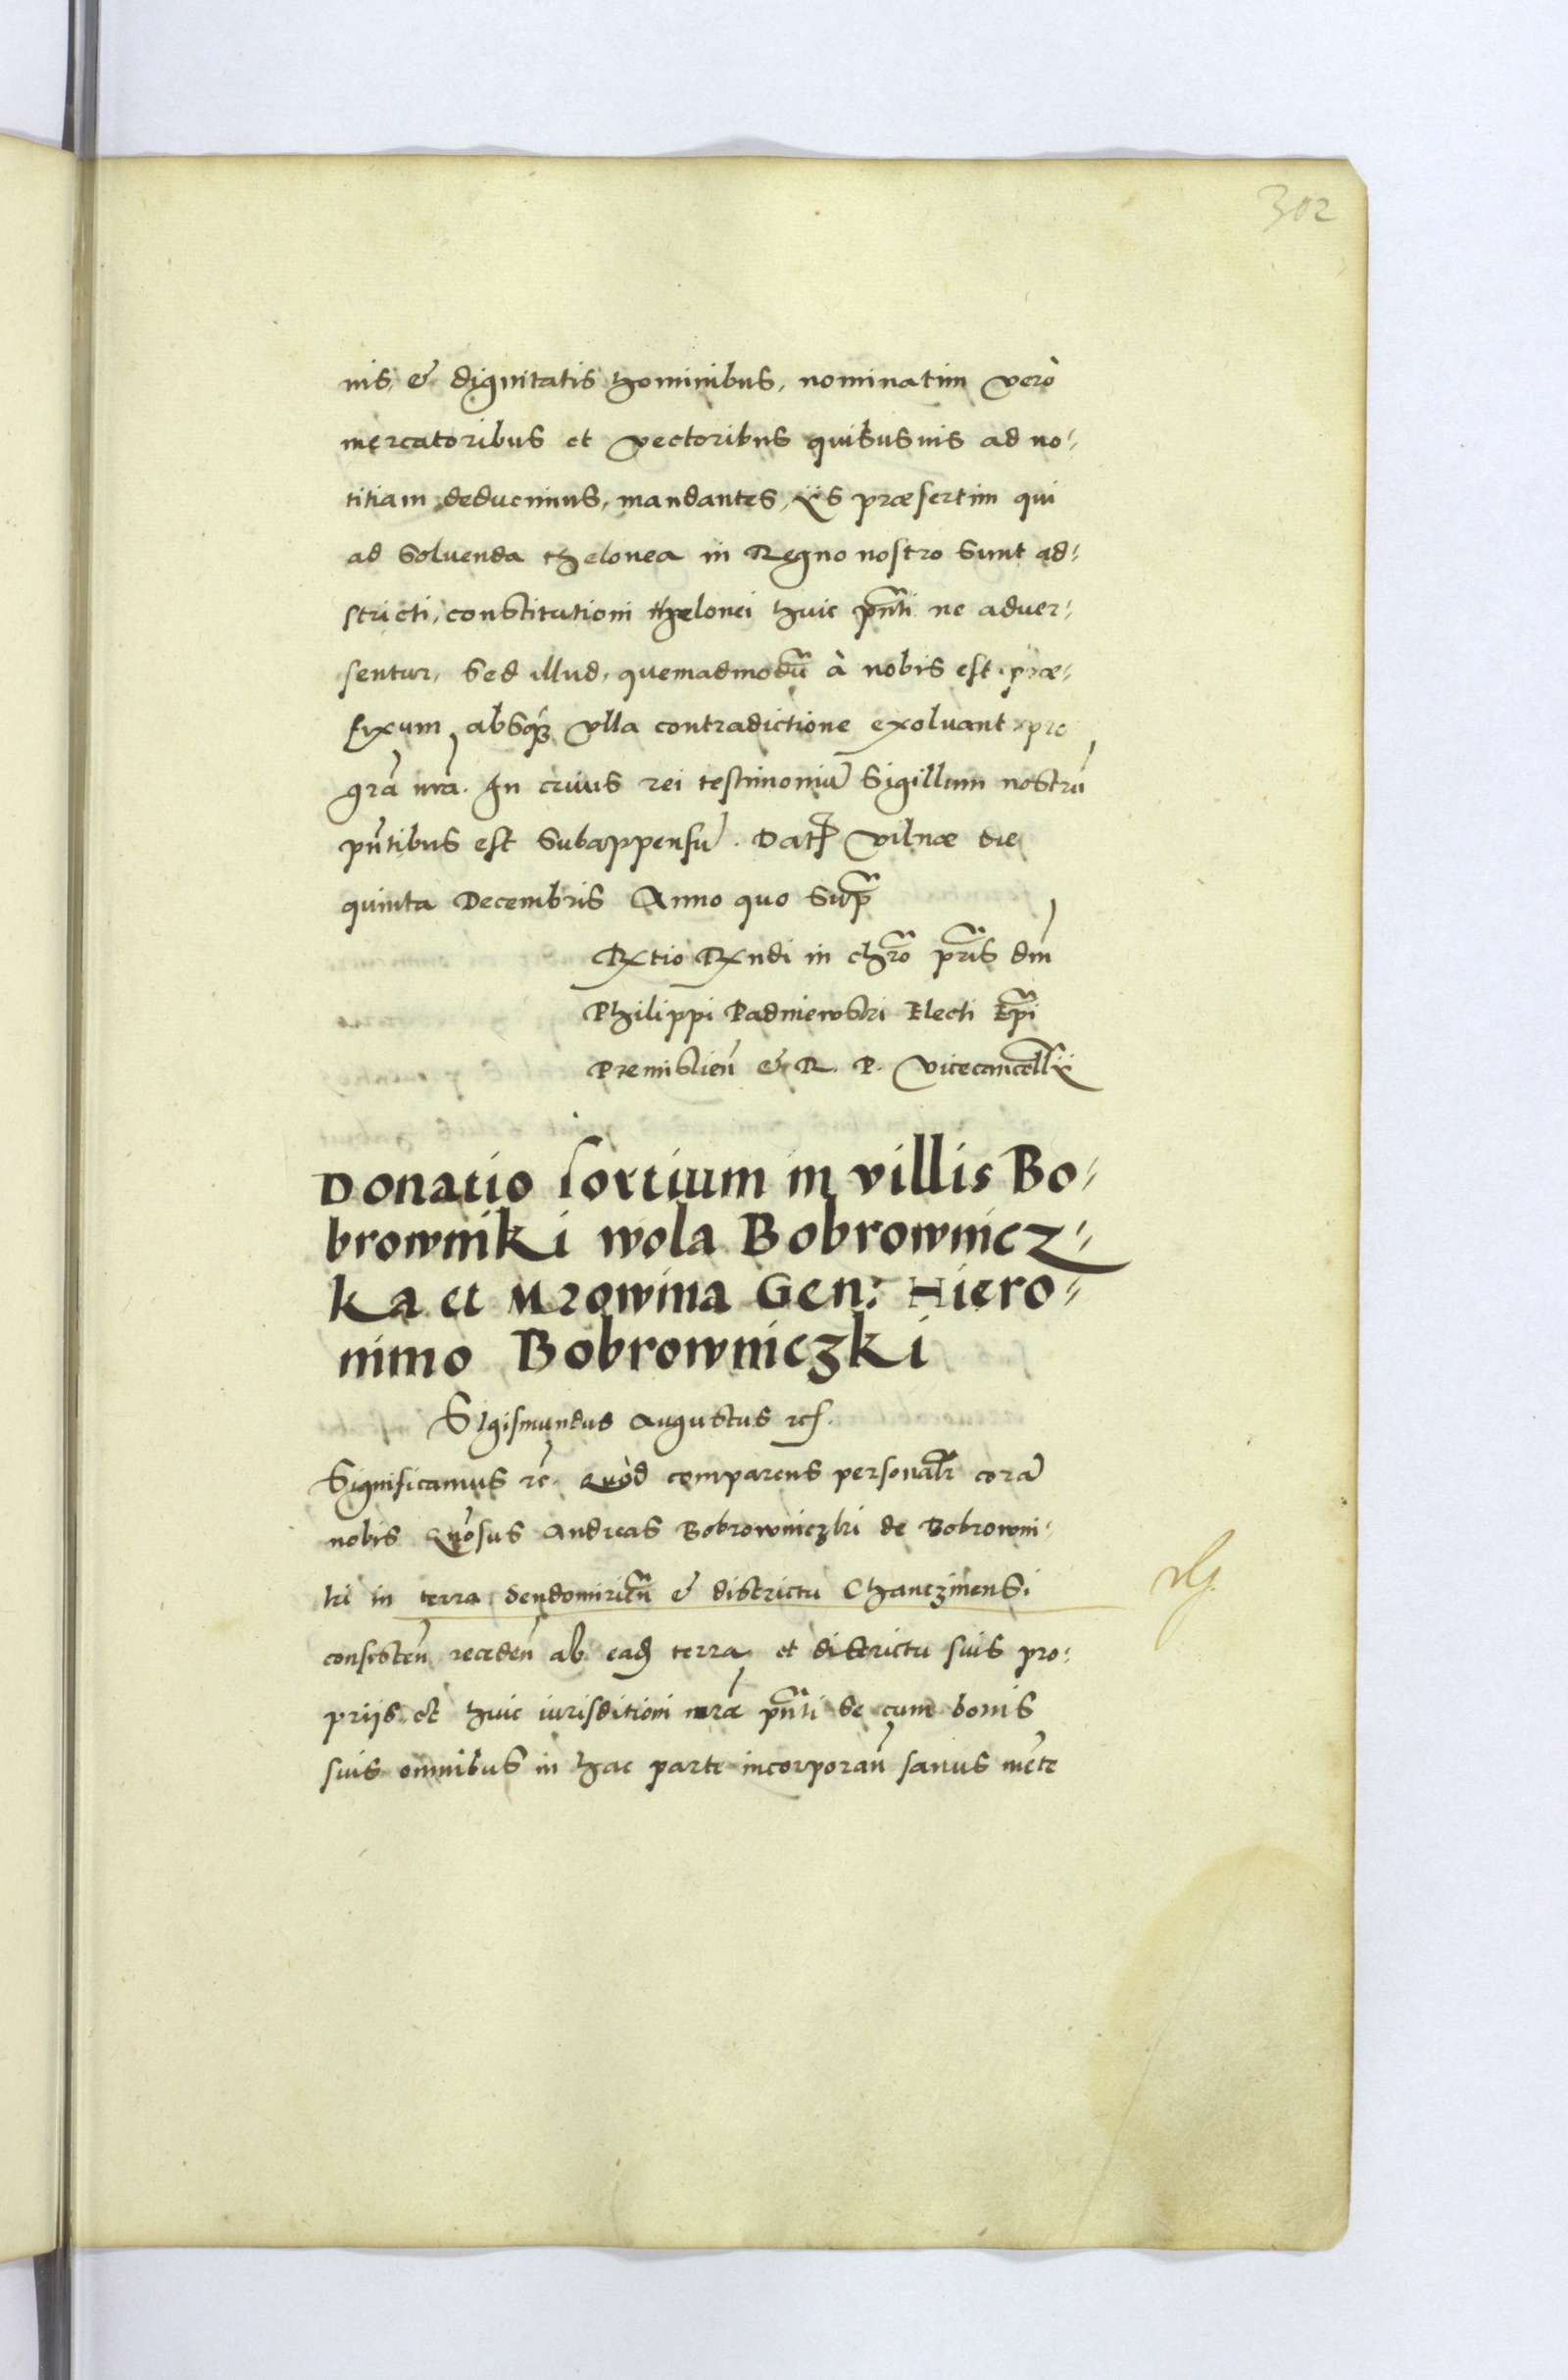 302
nis, & dignitatis hominibus, nominatim verò
mercatoribus et vectoribus quibusuis ad no-
titiam deducimus, mandantes, ijs præsertim qui
ad soluenda thelonea in Regno nostro sunt ad-
stricti, constitutioni thelonei huic pñti ne aduer-
sentur, sed illud, quemadmodũ à nobis est præ-
fixum, absq3 vlla contradictione exoluant pro
grã nrã. In cuius rei testimoniũ Sigillum nostrũ
pñtibus est subappensũ. Dat Vilnæ die
quinta Decembris Anno quo supã
Rtio Rndi in chro pris dni
Philippi Padniewski Electi Epi
Premislien̄ & R. P. Vicecancellrij
Donatio sortium in villis Bo-
browniki wola Bobrownicz-
ka et Mrowina Gen: Hiero-
nimo Bobrowniczki
Sigismundus Augustus etc.
Significamus etc. Quòd comparens personalr corã
nobis Gñosus Andreas Bobrowniczki de Bobrowni-
ki in terra Sendomirien̄ & districtu Chanczinensi
consisten̄ receden̄ ab ead terra et districtu suis pro-
priis et huic iurisditioni nræ pñti se cum bonis
suis omnibus in hac parte incorporan̄ sanus mẽte